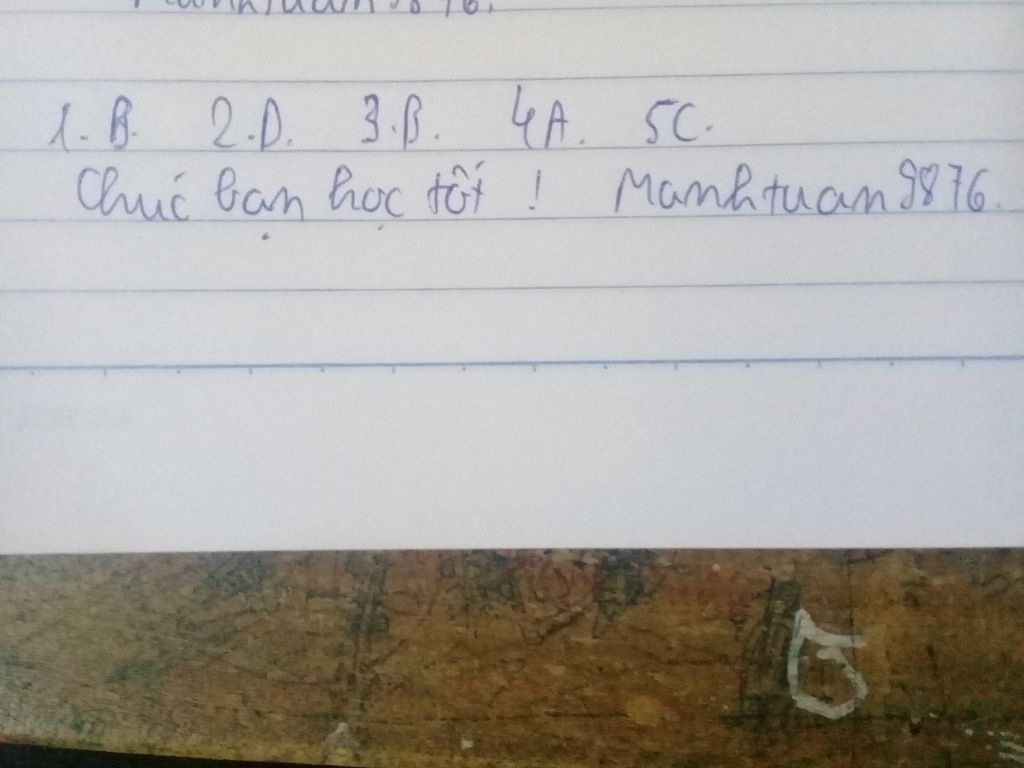 Manhtuan9876.
1. B. 2. D. 3. B. 4A. 5C.
Chúc bạn học tốt ! Manhtuan9876.